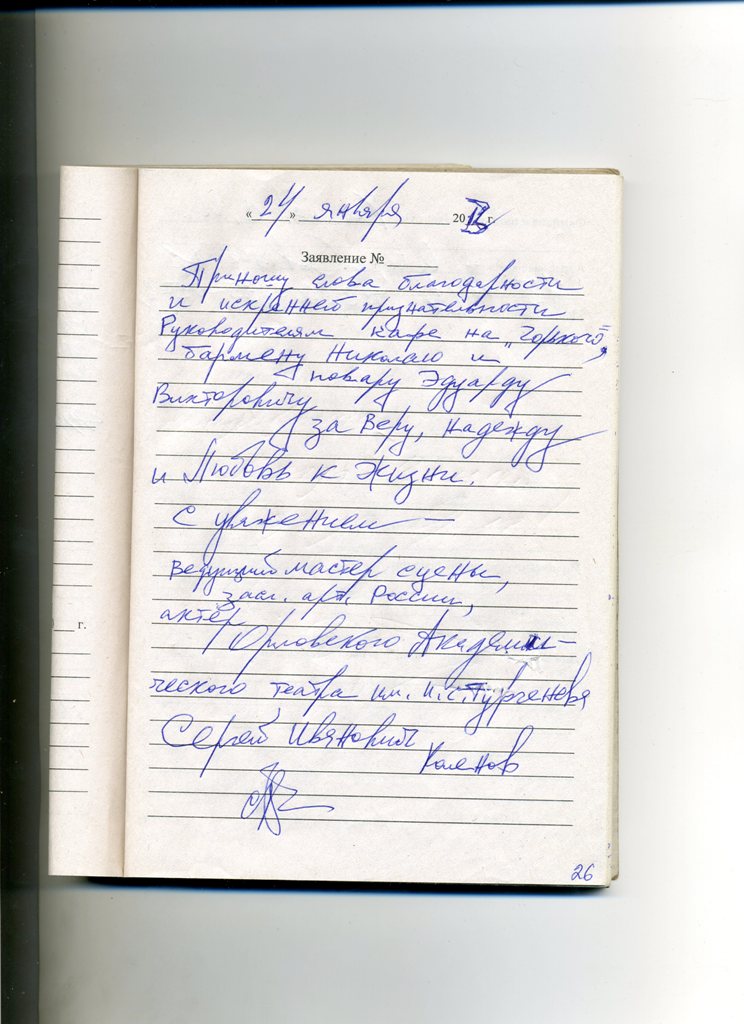 « 24 » января 2012 г.
Заявление №
Приношу слова благодарности
и искренней признательности
Руководителям кафе на „Горького",
бармену Николаю и
повару Эдуарду
Викторовичу
за Веру, Надежду
и Любовь к Жизни.
С уважением —
Ведущий мастер сцены,
засл. арт. России,
актёр
Орловского Академи-
ческого театра им. И.С. Тургенева
Сергей Иванович
Коленов
г.
26